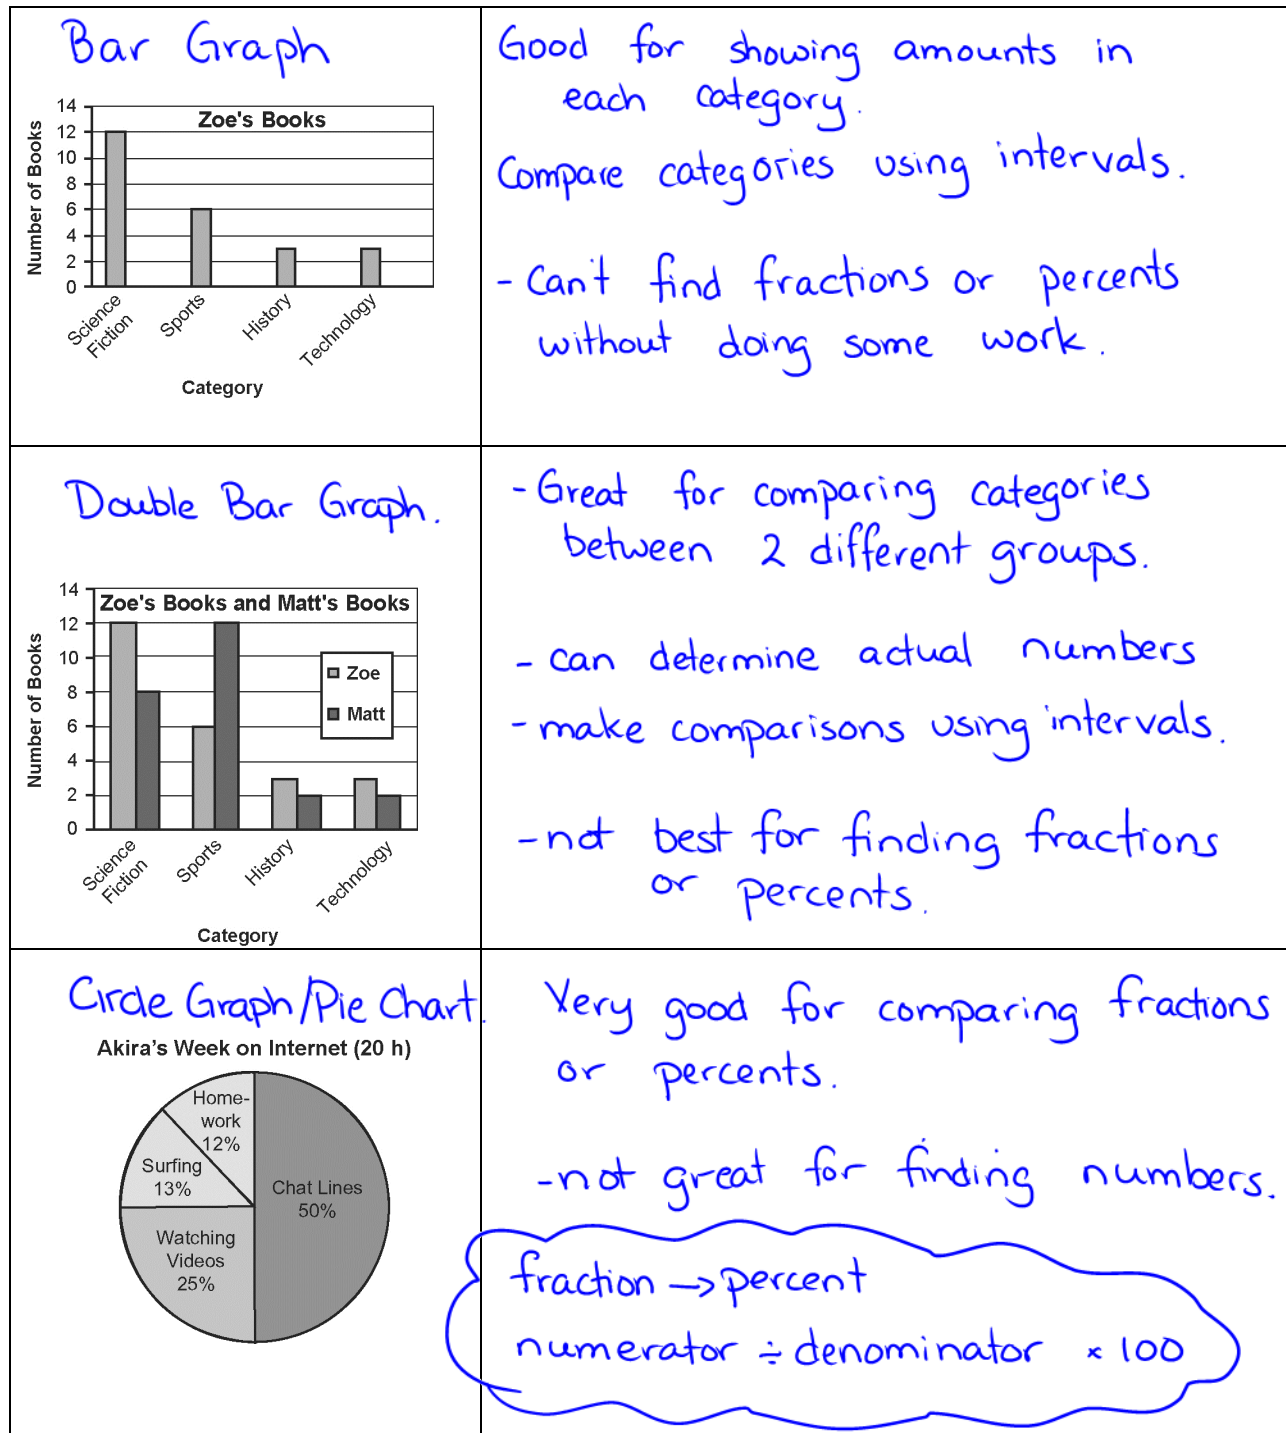 Bar Graph
Zoe's Books
Number of Books
14
12
10
8
6
4
2
0
Science
Fiction
Sports
History
Technology
Category
Good for showing amounts in
each category.
Compare categories using intervals.
- Can't find fractions or percents
without doing some work.
Double Bar Graph.
Zoe's Books and Matt's Books
Number of Books
14
12
10
8
6
4
2
0
Zoe
Matt
Science
Fiction
Sports
History
Technology
Category
- Great for comparing categories
between 2 different groups.
- can determine actual numbers
- make comparisons using intervals.
- not best for finding fractions
or percents.
Circle Graph/Pie Chart.
Akira's Week on Internet (20 h)
Home-
work
12%
Surfing
13%
Chat Lines
50%
Watching
Videos
25%
Very good for comparing fractions
or percents.
- not great for finding numbers.
fraction → percent
numerator ÷ denominator × 100